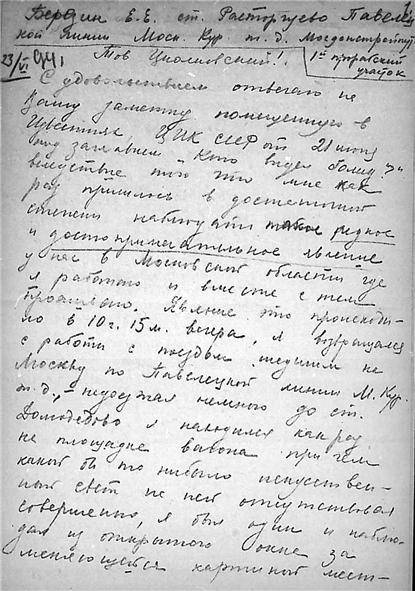 Бередин Е.Е. ст. Расторгуево Павелец-
кой линии Моск. Кур. ж.д.
23/VI 34г. Тов Циолковский!. 1й прорабский участок
С удовольствием отвечаю на
Вашу заметку помещенную в
Известиях ЦИК СССР от 21 июня
под заглавием "Кто видел болид?"
вследствие того что мне как
раз пришлось в достаточной
степени наблюдать такое редкое
и достопримечательное явление
у нас в Московской области где
я работаю и вместе с тем
проживаю. Явление это происходи-
ло в 10 г. 15 м. вечера, я возвращался
с работы с поездом шедшим на
Москву по Павелецкой линии М. Кур.
ж.д., - недоезжая немного до ст.
Домодедово я находился как раз
на площадке вагона при чем
какой бы то нибыло искусствен-
ный свет на ней отсутствовал
совершенно, я был один и наблю-
дал из открытого окна за
меняющейся картиной мест-